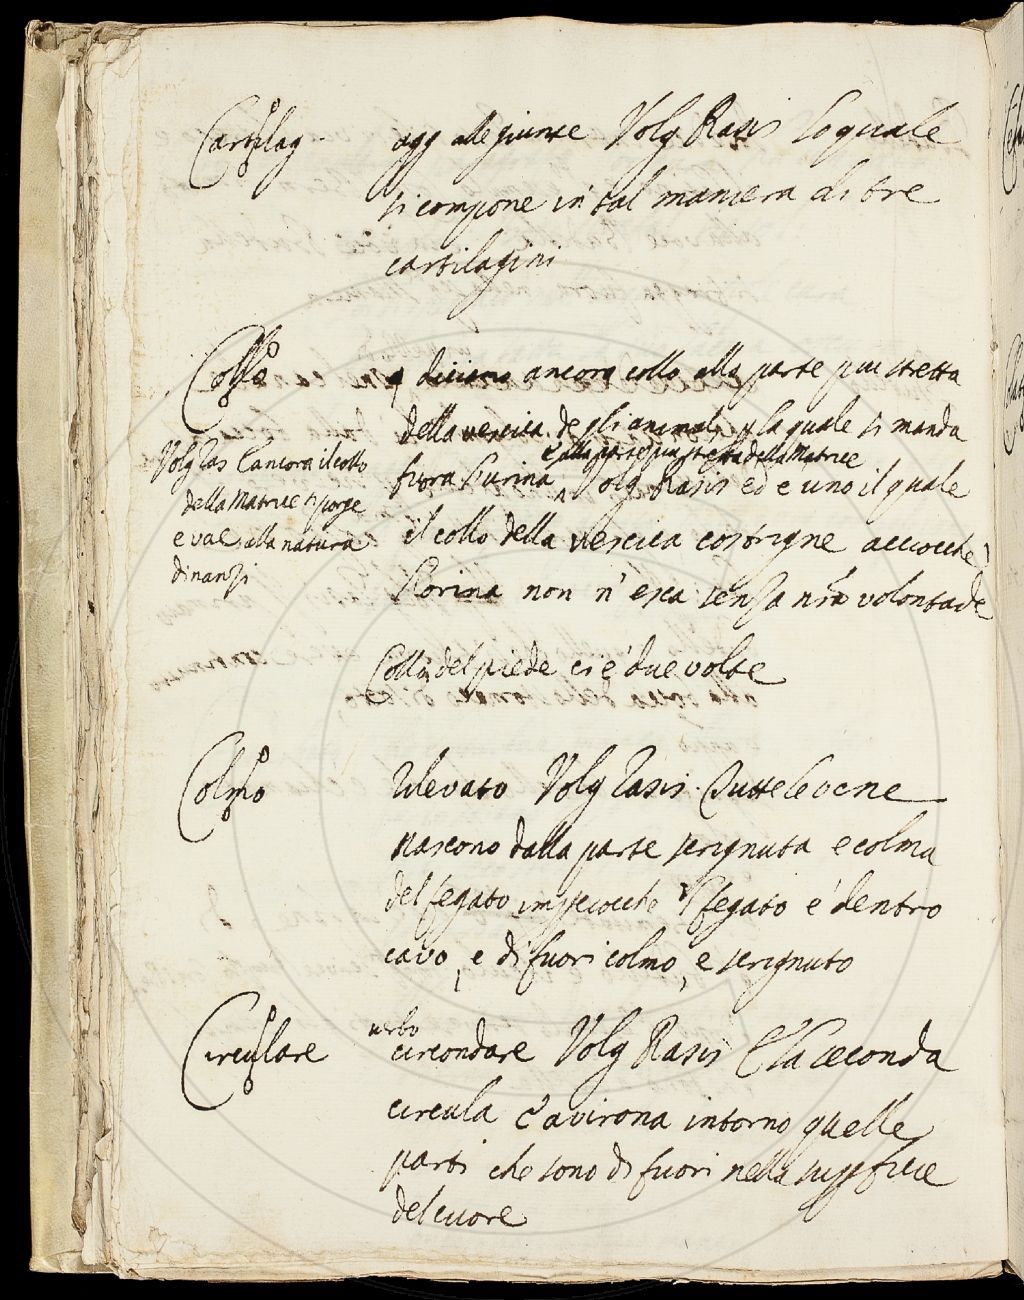 Cartilag. agg alle giunte Volg Rasis Lo quale
si compone in tal maniera di tre
cartilagini
Collo q diciamo ancora collo alla parte piu stretta
della vescica degli animali p la quale si manda
fuora l'urina e alla parte piu stretta della Matrice Volg Rasis ed e uno il quale
il collo della vescica costrigne accioche
l'orina non n'esca senza nrã volontade
Volg Ras E ancora il collo
della Matrice si porge
e vae alla natura
dinanzi
Collo del piede ci è due volte
Colmo rilevato Volg Rasis. Tutte le vene
nascono dalla parte scrignuta e colma
del fegato impciocche 'l fegato e' dentro
cavo, e di fuori colmo, e scrignuto
Circulare verbo
circondare Volg Rasis E la seconda
circula e avirona intorno quelle
parti che sono di fuori nella supficie
del cuore